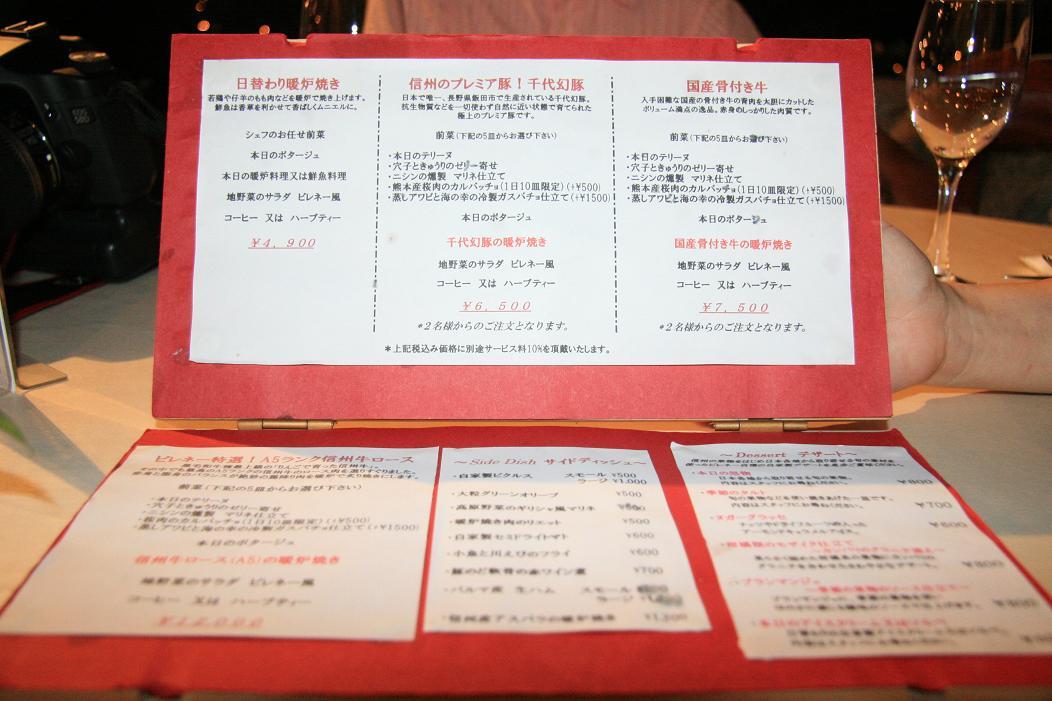 日替わり暖炉焼き
若鶏や仔羊のもも肉などを暖炉で焼き上げます。
鮮魚は香草を利かせて香ばしくムニエルに。
シェフのお任せ前菜
本日のポタージュ
本日の暖炉料理又は鮮魚料理
地野菜のサラダ ピレネー風
コーヒー 又は ハーブティー
¥4,900
信州のプレミア豚!千代幻豚
日本で唯一、長野県飯田市で生産されている千代幻豚。
抗生物質などを一切使わず自然に近い状態で育てられた
極上のプレミア豚です。
前菜(下記の5皿からお選び下さい)
・本日のテリーヌ
・穴子ときゅうりのゼリー寄せ
・ニシンの燻製 マリネ仕立て
・熊本産桜肉のカルパッチョ(1日10皿限定)(+¥500)
・蒸しアワビと海の幸の冷製ガスパチョ仕立て(+¥1500)
本日のポタージュ
千代幻豚の暖炉焼き
地野菜のサラダ ピレネー風
コーヒー 又は ハーブティー
¥6,500
*2名様からのご注文となります。
国産骨付き牛
入手困難な国産の骨付き牛の背肉を大胆にカットした
ボリューム満点の逸品。赤身のしっかりした肉質です。
前菜(下記の5皿からお選び下さい)
・本日のテリーヌ
・穴子ときゅうりのゼリー寄せ
・ニシンの燻製 マリネ仕立て
・熊本産桜肉のカルパッチョ(1日10皿限定)(+¥500)
・蒸しアワビと海の幸の冷製ガスパチョ仕立て(+¥1500)
本日のポタージュ
国産骨付き牛の暖炉焼き
地野菜のサラダ ピレネー風
コーヒー 又は ハーブティー
¥7,500
*2名様からのご注文となります。
*上記税込み価格に別途サービス料10%を頂戴いたします。
ピレネー特選!A5ランク信州牛ロース
前菜(下記の5皿からお選び下さい)
・本日のテリーヌ
・穴子ときゅうりのゼリー寄せ
・ニシンの燻製 マリネ仕立て
・桜肉のカルパッチョ(1日10皿限定)(+¥500)
・蒸しアワビと海の幸の冷製ガスパチョ仕立て(+¥1500)
本日のポタージュ
信州牛ロース(A5)の暖炉焼き
地野菜のサラダ ピレネー風
コーヒー 又は ハーブティー
¥12,000
~Side Dish サイドディッシュ~
・自家製ピクルス スモール ¥500
ラージ ¥1,000
・大粒グリーンオリーブ ¥500
・高原野菜のギリシャ風マリネ ¥500
・暖炉焼き肉のリエット ¥500
・自家製セミドライトマト ¥600
・小魚と川えびのフライ ¥600
・豚のど軟骨の赤ワイン煮 ¥700
・パルマ産 生ハム スモール
ラージ
・信州産アスパラの暖炉焼き
~Dessert デザート~
・本日の果物
¥800
・季節のタルト
¥700
・ヌガーグラッセ
¥600
・柑橘類のモザイク仕立て
¥800
・ブランマンジェ